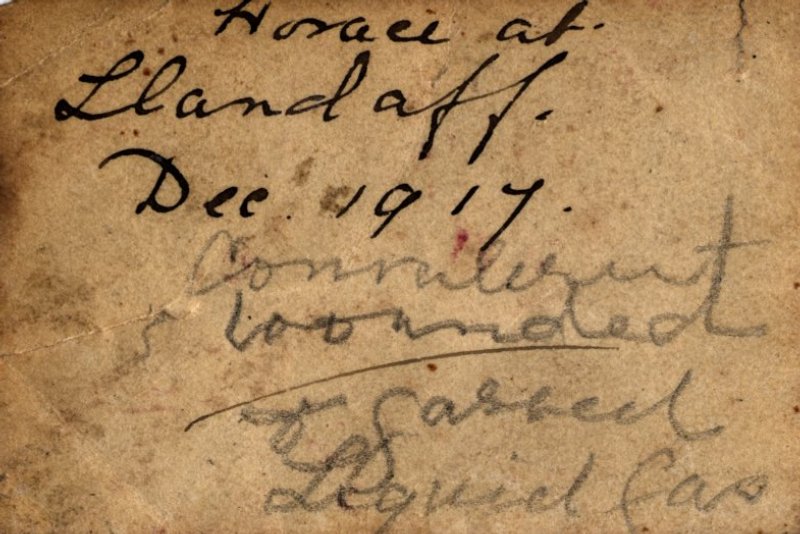 Horace at.
Llandaff.
Dec. 1917.
Convalescent
wounded
& gassed
Liquid Gas